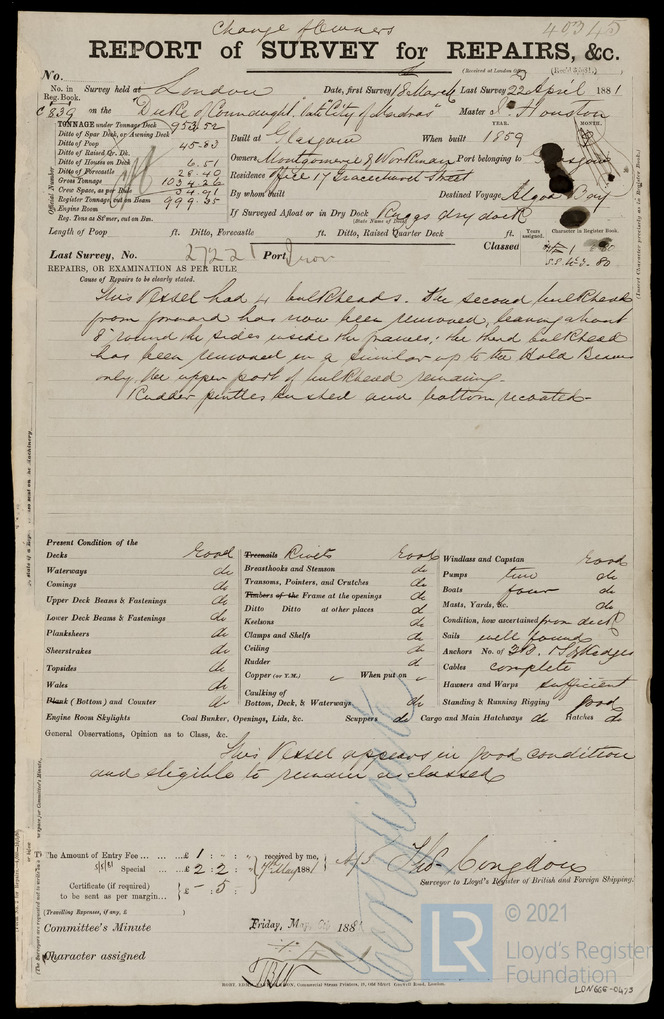 Change of Owners
40345
REPORT of SURVEY for REPAIRS, &c.
No.
(Received at London Office
No. in Reg. Book. Survey held at London Date, first Survey 18 March Last Survey 22 April 1881
839 on the "Duke of Connaught", late "City of Madras" Master J. Houston
TONNAGE under Tonnage Deck 953.52
Ditto of Spar Deck, or Awning Deck
Ditto of Poop 45.83
Ditto of Raised Qr. Dk.
Ditto of Houses on Deck 6.51
Ditto of Forecastle 28.40
Gross Tonnage 1034.26
Crew Space, as per Rule 34.91
Register Tonnage, cut on Beam 999.35
Engine Room
Reg. Tons as 8d mesr, cut on Bm.
Official Number
YEAR. MONTH.
Built at Glasgow When built 1859
Owners Montgomerie & Workman Port belonging to Glasgow
Residence Office 17 Gracechurch Street
By whom built Destined Voyage Algoa Bay
If Surveyed Afloat or in Dry Dock Ruggs dry dock
(State Name of Dock)
Length of Poop ft. Ditto, Forecastle ft. Ditto, Raised Quarter Deck ft.
Years assigned. Character in Register Book.
Classed
80
Last Survey, No. 27221 Port Iron
REPAIRS, OR EXAMINATION AS PER RULE
Cause of Repairs to be clearly stated.
This Vessel had 4 bulkheads. The second bulkhead
from forward has now been removed, leaving about
8" round the sides inside the frames; the third bulkhead
has been removed in a similar up to the Hold Beams
only, the upper part of bulkhead remaining.
Rudder pintles bushed and bottom recoated.
Present Condition of the
Decks Good
Waterways do
Comings do
Upper Deck Beams & Fastenings do
Lower Deck Beams & Fastenings do
Planksheers do
Sheerstrakes do
Topsides do
Wales do
Plank (Bottom) and Counter do
Treenails Rivets Good
Breasthooks and Stemson do
Transoms, Pointers, and Crutches do
Timbers of the Frame at the openings do
Ditto Ditto at other places do
Keelsons do
Clamps and Shelfs do
Ceiling do
Rudder do
Copper (or Y.M.) " When put on "
Caulking of
Bottom, Deck, & Waterways do
Windlass and Capstan Good
Pumps two do
Boats four do
Masts, Yards, &c. do
Condition, how ascertained from deck
Sails well found
Anchors No. of 3 B. 1 S 2 Kedges
Cables complete
Hawsers and Warps sufficient
Standing & Running Rigging good
Engine Room Skylights Coal Bunker, Openings, Lids, &c. Scuppers do Cargo and Main Hatchways do Hatches do
General Observations, Opinion as to Class, &c.
This Vessel appears in good condition
and eligible to remain as classed
Certificate
The Amount of Entry Fee ... £ 1 : - : - received by me,
Special ... £ 2 : 2 : 7 May 1881
Certificate (if required) £ - : 5 :
to be sent as per margin...
(Travelling Expenses, if any, £ )
Thos. Congdon
Surveyor to Lloyd's Register of British and Foreign Shipping.
Committee's Minute Friday, May 6th 1881
Character assigned
© 2021
LR
Lloyd's Register
Foundation
LDN666-0473